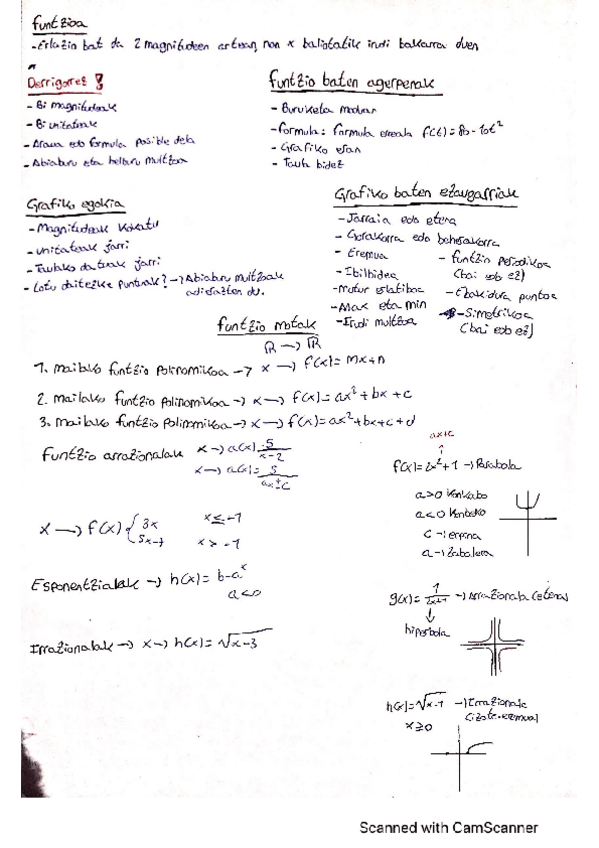 Funtzioa
-Erlazio bat da 2 magnitudeen artean, non x balistatik irudi bakarra duen
Derrigorrez!
- Bi magnitudeak
- Bi unitateak
- Araua edo formula posible dela
- Abiaburu eta helburu multzoa
Funtzio baten agerpenak
- Buruketa moduan
-Formula: formula erreala f(t)=80-10t²
- Grafiko eran
- Taula bidez
Grafiko egokia
- Magnitudeak kokatu
- unitateak jarri
- Taulako datuak jarri
- Lotu daitezke puntuak? → Abiaburu multzoak
adierazten du.
Grafiko baten ezaugarriak
-Jarraia edo etena
- Gorakorra edo beherakorra
- Eremua
- Ibilbidea
-Mutur erlatiboa
-Max eta min
-Irudi multzoa
- funtzio periodikoa
(bai edo ez)
- Ebakidura puntoa
-Simetrikoa
(bai edo ez)
Funtzio motak
R → R
1. mailako funtzio polinomikoa → x → f(x)= mx+n
2. mailako funtzio polinomikoa → x → f(x)= ax²+bx+c
3. mailako funtzio polinomikoa → x → f(x)= ax²+bx+c+d
Funtzio arrazionalak x → a(x) 5/x-2
x → a(x)= 5/ax±c
x → f(x) { 3x x≤-1
5x-7 x>-1
Esponentzialak → h(x)= b-aˣ
a<0
Irrazionalak → x → h(x)= √x-3
ax+c
↑
f(x)=2x²+1 → Parabola
a>0 konkabo
a<0
c →
a → zabalera
g(x)= 1/2x+1 → Arrazionala (etena)
↓
hiperbola
h(x)=√x-1 → Irrazionala
x≥0
Scanned with CamScanner